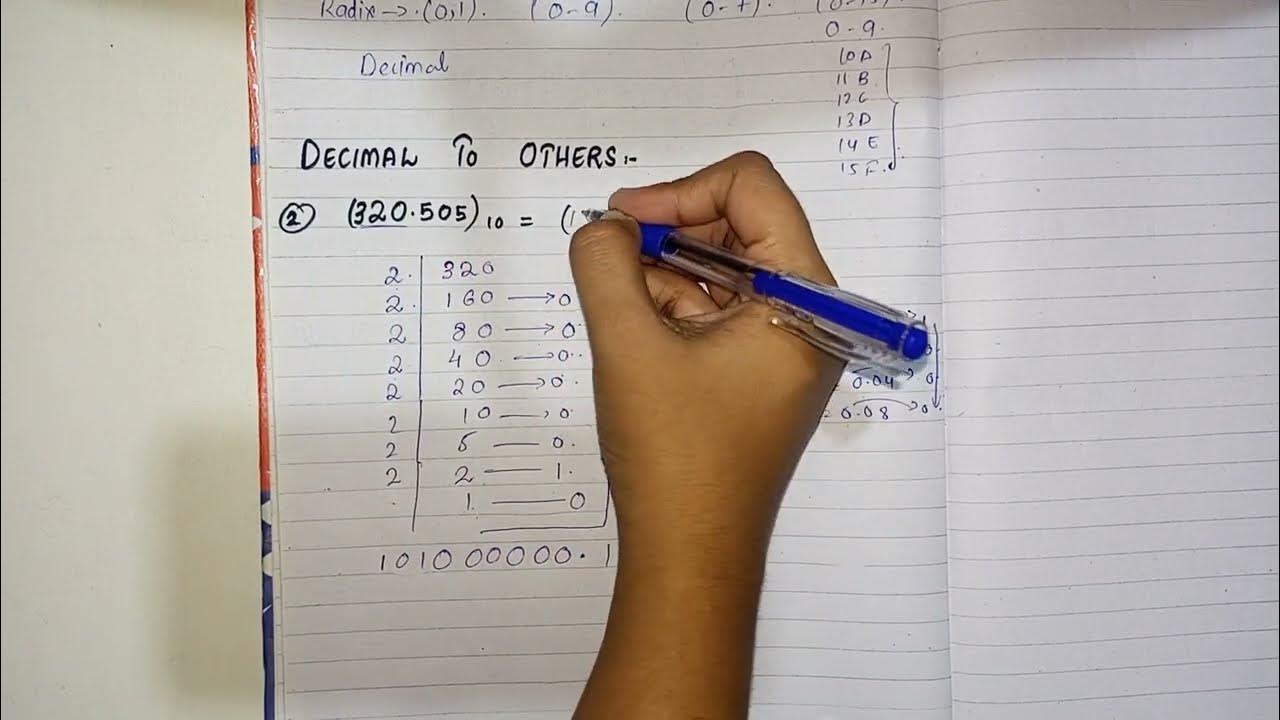 Radix → (0,1). (0-9). (0-7).
0-9.
Decimal
10 A
11 B
12 C
13 D
14 E
15 F.
DECIMAL TO OTHERS:-
② (320.505)10 = (1
2. 320
2. 160 → 0
2 80 → 0
2 40 → 0
2 20 → 0
2 10 → 0
2 5 — 0.
2 2 — 1.
1 — 0
0.04 0
= 0.08 → 0
101000000.1